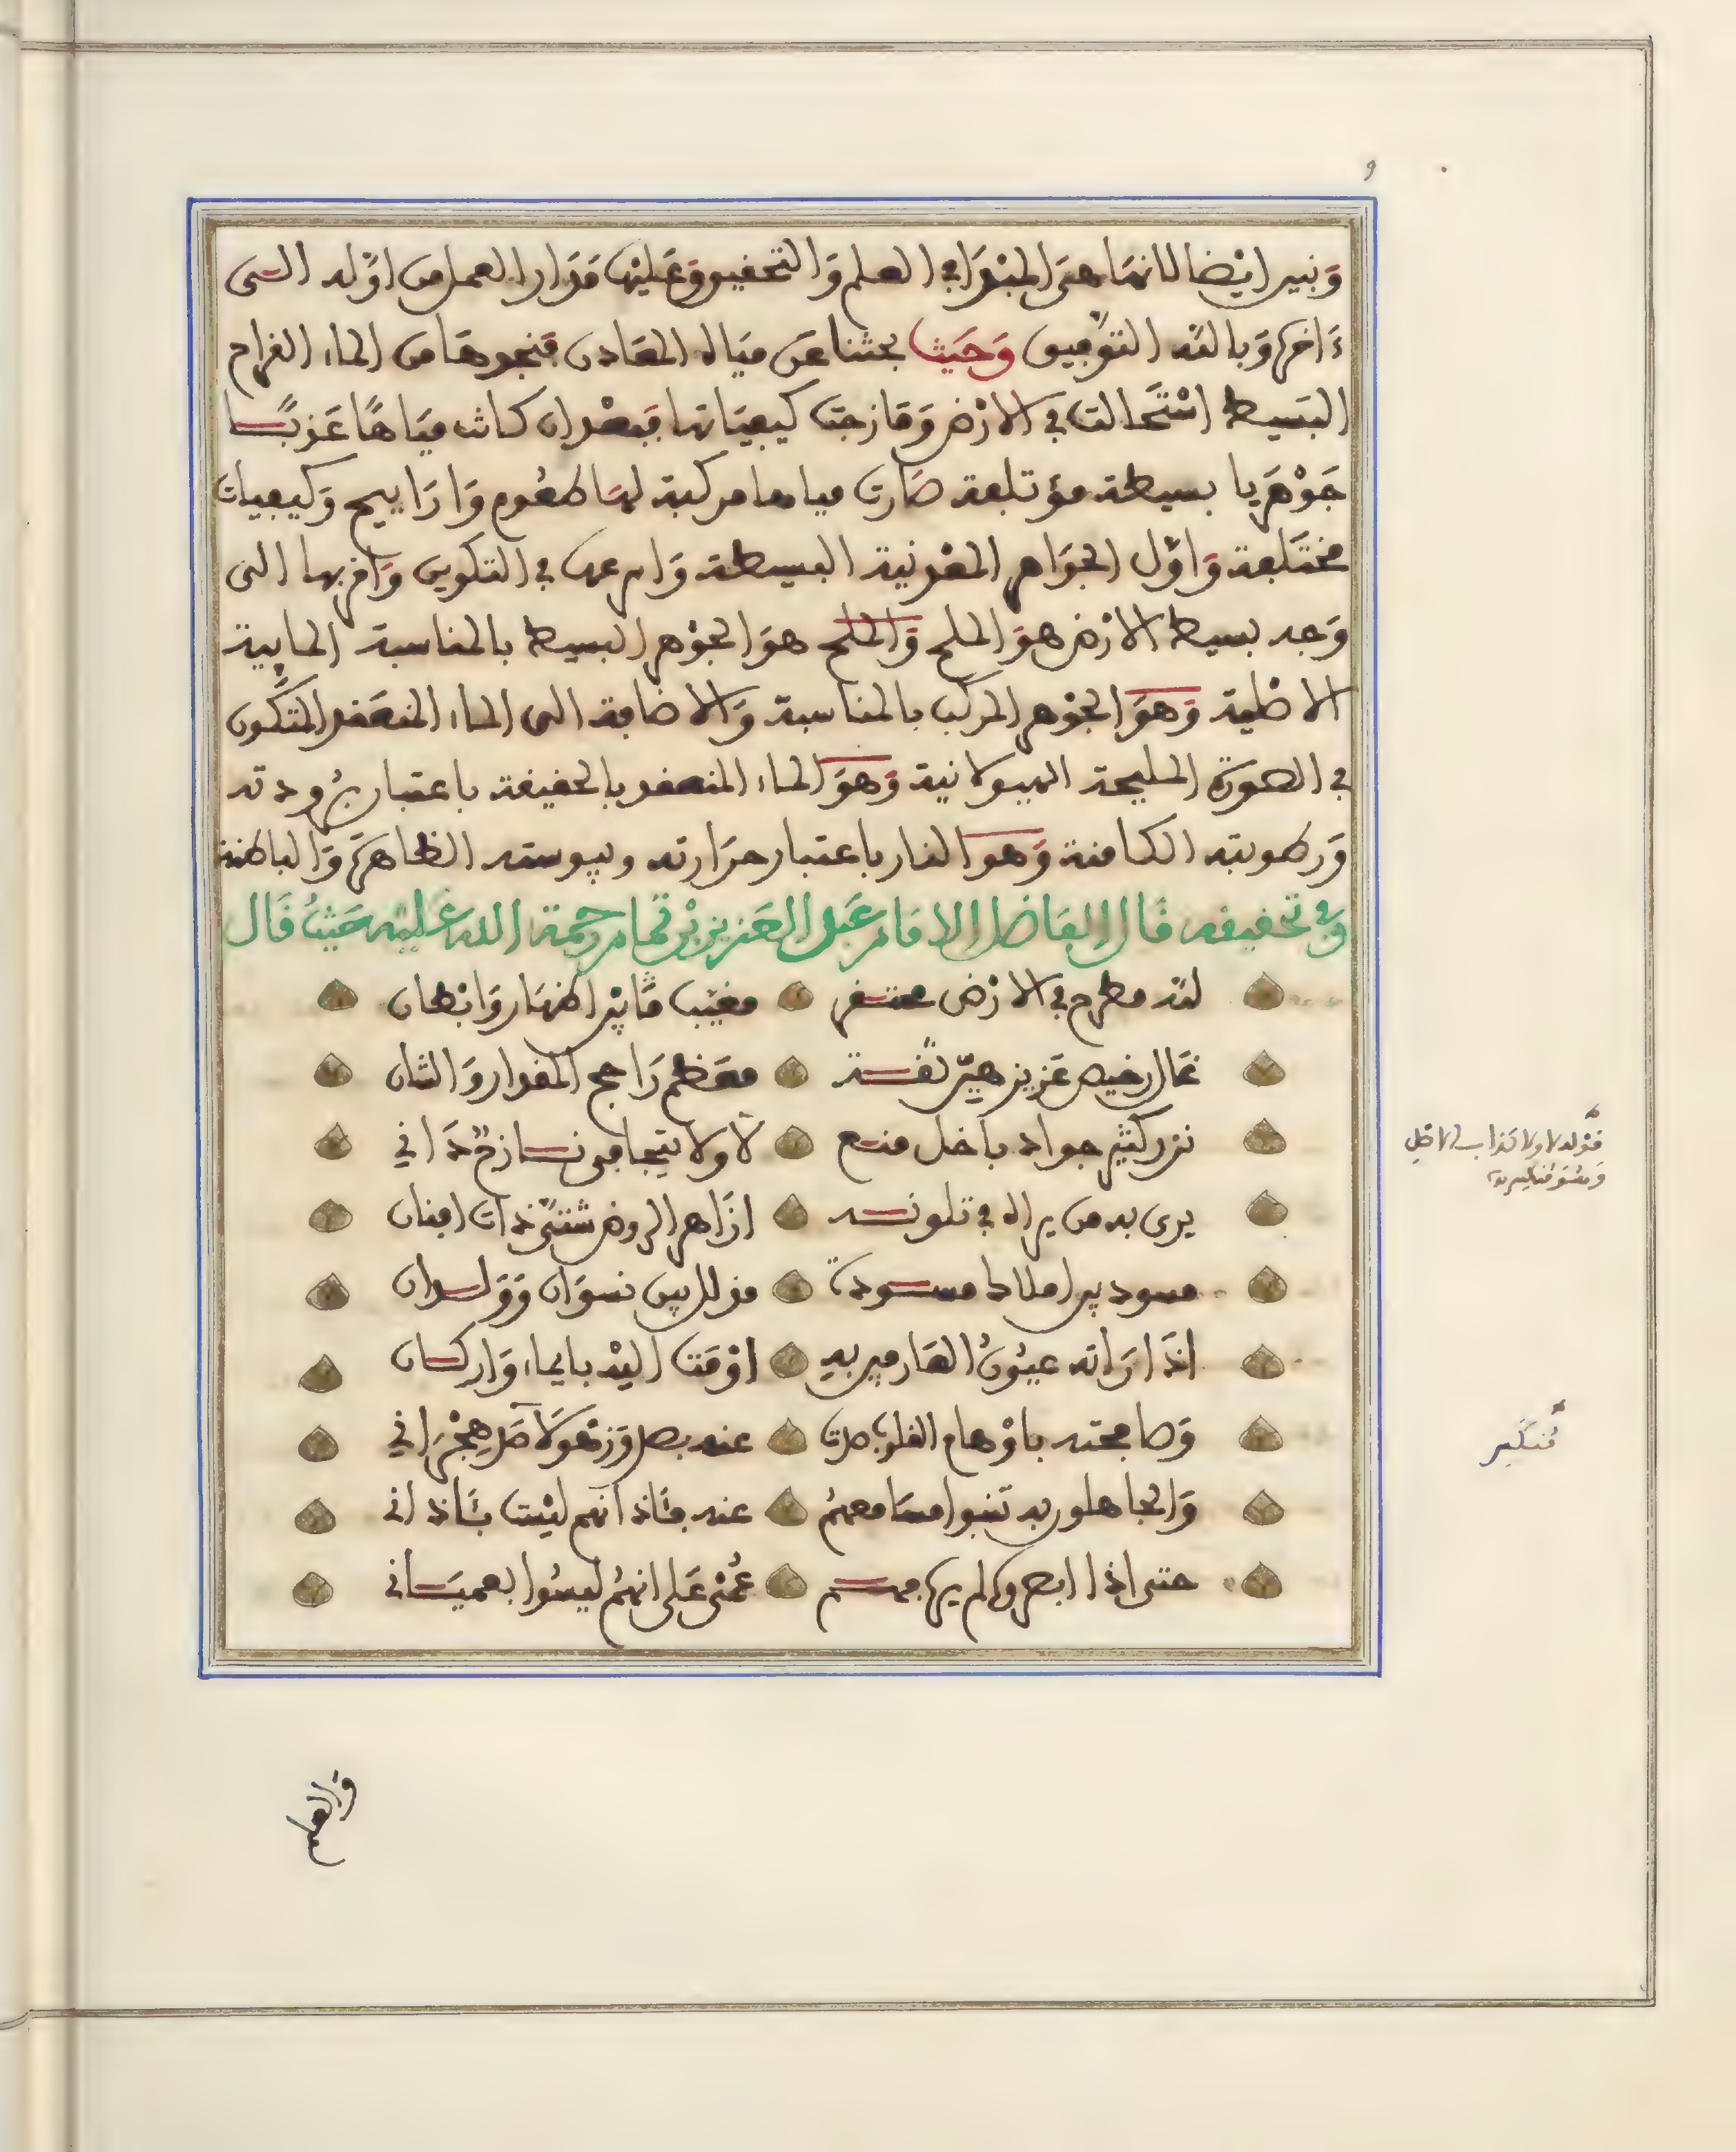 ٩
وَنبين ايْضا لانهَا هىَ المبْدَا في العلم وَالتحفيق وَعَليْها مَدَار العمل من اوّله الــى
ءاخره وَبالله التوْفيق وَحَيْث بحثنا عَن مِيَاه المعَادن فنجدهَا من الماء القراح
البَسيط اسْتَحَالت في الارْض وَمَازجت كيفيَاتها فبعْد ان كانت ميَاهًا عَذبًــا
جَوْهَريا بسيطة مؤتلفة صَارت مياها مركبة لهَا طعُوم وَارَاييح وَكيفيات
مختَلفة وَاوّل الجوَاهر المعْدنية البسيطة وَاسرعها في التكوين وَاقربها الى
وَجه بسيط الارْض هوَ الملح وَالملح هوَ الجوْهر البسيط بالمناسبة المايية
الاصْلية وَهوَ الجوْهر المركب بالمناسبة وَالاضافة الى الماء المنعَقد المتكَّون
في الصورَة المليحة الهيولانية وَهوَ الماء المنعقد بالحقيقة باعتبار برُودته
وَرطوبته الكامنة وَهوَ النار باعتبار حرَارته ويبوسته الظاهرَة وَالباطنة
وَفي تحقيقه قَال الفَاضل الامَام عَبد العَزيز بْن تمام رحمة الله عَليْه حَيْثُ قَال
لله مطرح في الارْض محتــقر مغيّب مَّا بيْن اظهَار وَابْطان
غَال رخيص عَزيز هيّن ثقــة معَظم رَاجح المقدار وَالشان
نزر كثير جواد باخل منــع لاَ ولا يتجافى نــازح دَاني
يرى به من يراه في تلونــه ازَاهر الروض شتىّ ذات افنان
مسود بين املاك مســودة مذلل بين نسوَان وَوَلــدان
اذَا رَاته عيُونُ العَارفين بهِ اوْمَت اليْه بايماء وَاركــان
وَصافحته باوْهام القلوب صدت عنه بصد وَزهو لاَ صَد هجْرَاني
وَالجاهلون به تنبوا مسَامعهمُ عنه فئَاذانهم ليْست بئَاذاني
حتى اذا ابصروه لم يره فهــم عُمْى عَلى انهمُ ليسُوا بعميَــاني
قوْله لا ولا
مُنكّس
وَالعلم